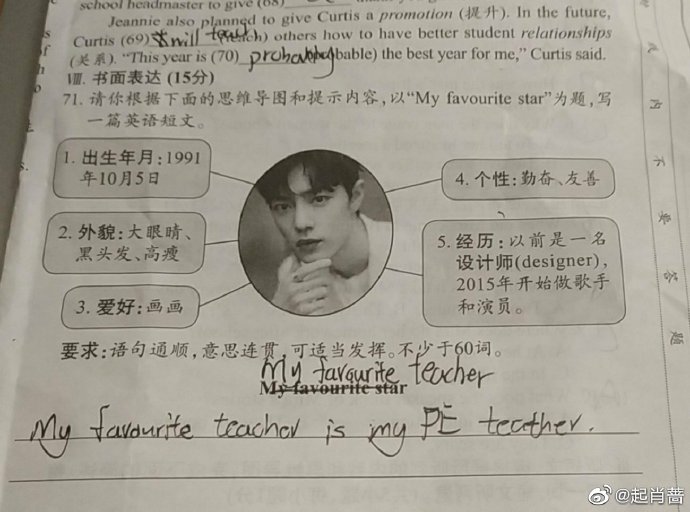 school headmaster to give (68)
Jeannie also planned to give Curtis a promotion (提升). In the future,
Curtis (69) will teach (teach) others how to have better student relationships
(关系). "This year is (70) probably (probable) the best year for me," Curtis said.
Ⅷ. 书面表达 (15分)
71. 请你根据下面的思维导图和提示内容,以"My favourite star"为题,写
一篇英语短文。
1. 出生年月:1991
年10月5日
2. 外貌:大眼睛、
黑头发、高瘦
3. 爱好:画画
4. 个性:勤奋、友善
5. 经历:以前是一名
设计师(designer),
2015年开始做歌手
和演员。
要求:语句通顺,意思连贯,可适当发挥。不少于60词。
My favourite teacher
My favourite star
My favourite teacher is my PE teather.
内
不
要
答
题
@起肖蔷